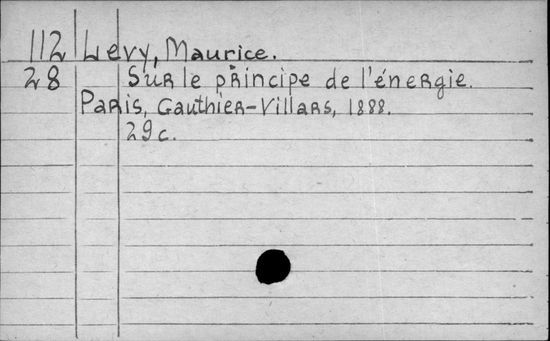 112 Levy, Maurice.
28 Sur le principe de l'énergie.
Paris, Gauthier-Villars, 1888.
29 c.